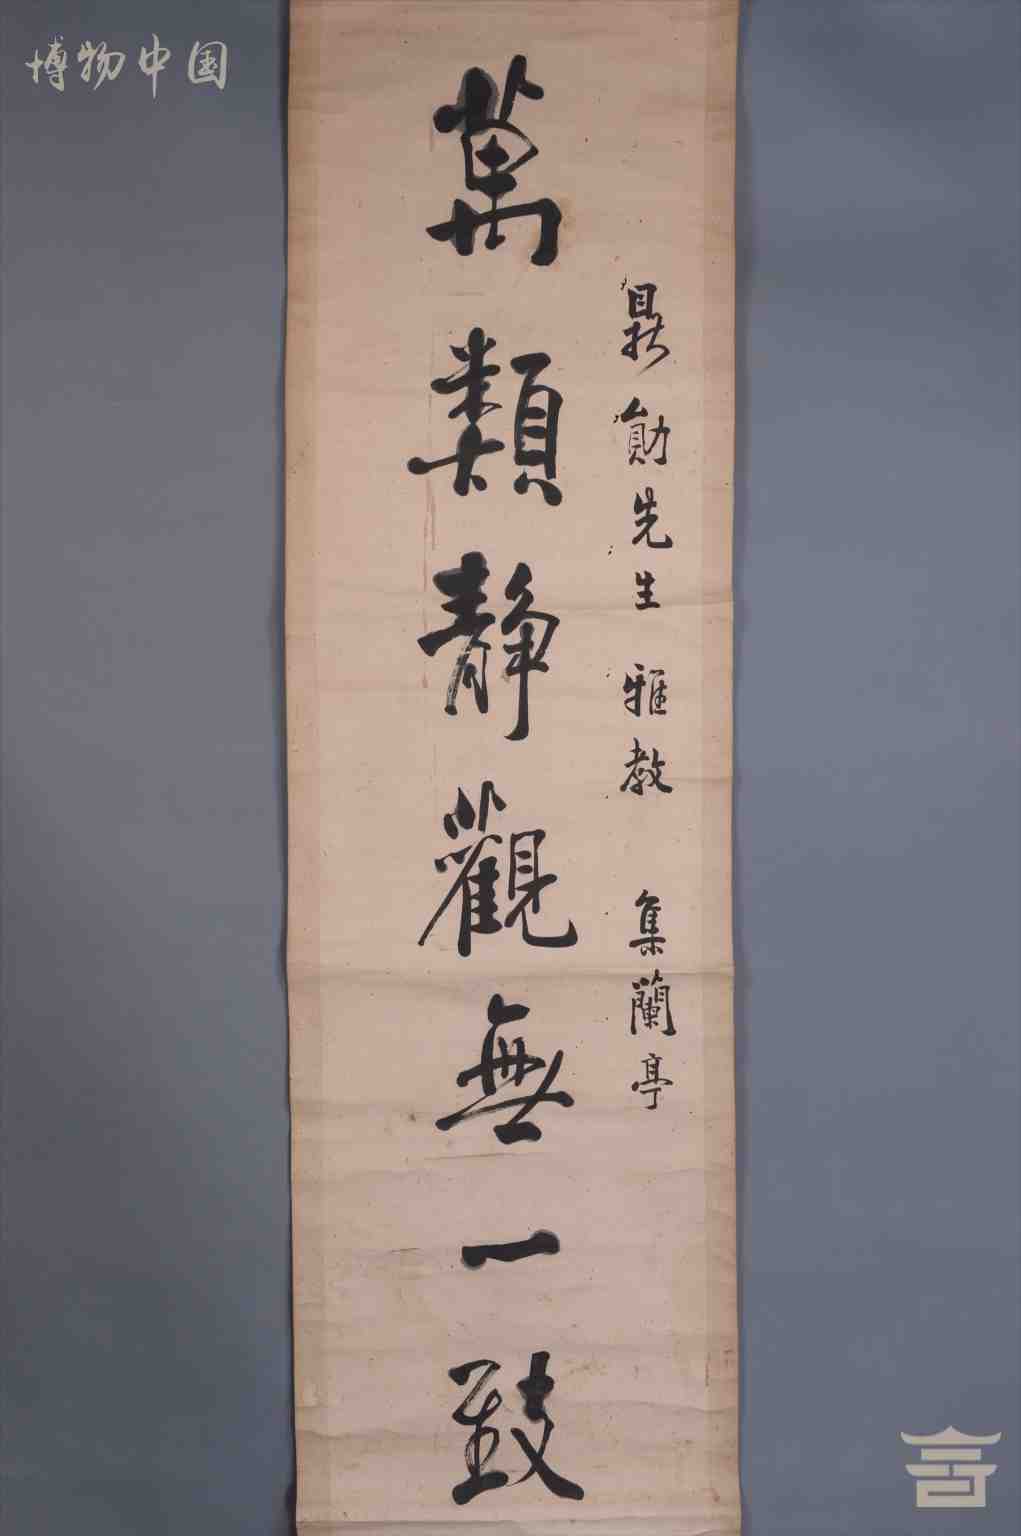 博物中国
鼎勛先生 雅教 集蘭亭
萬類靜觀無一致